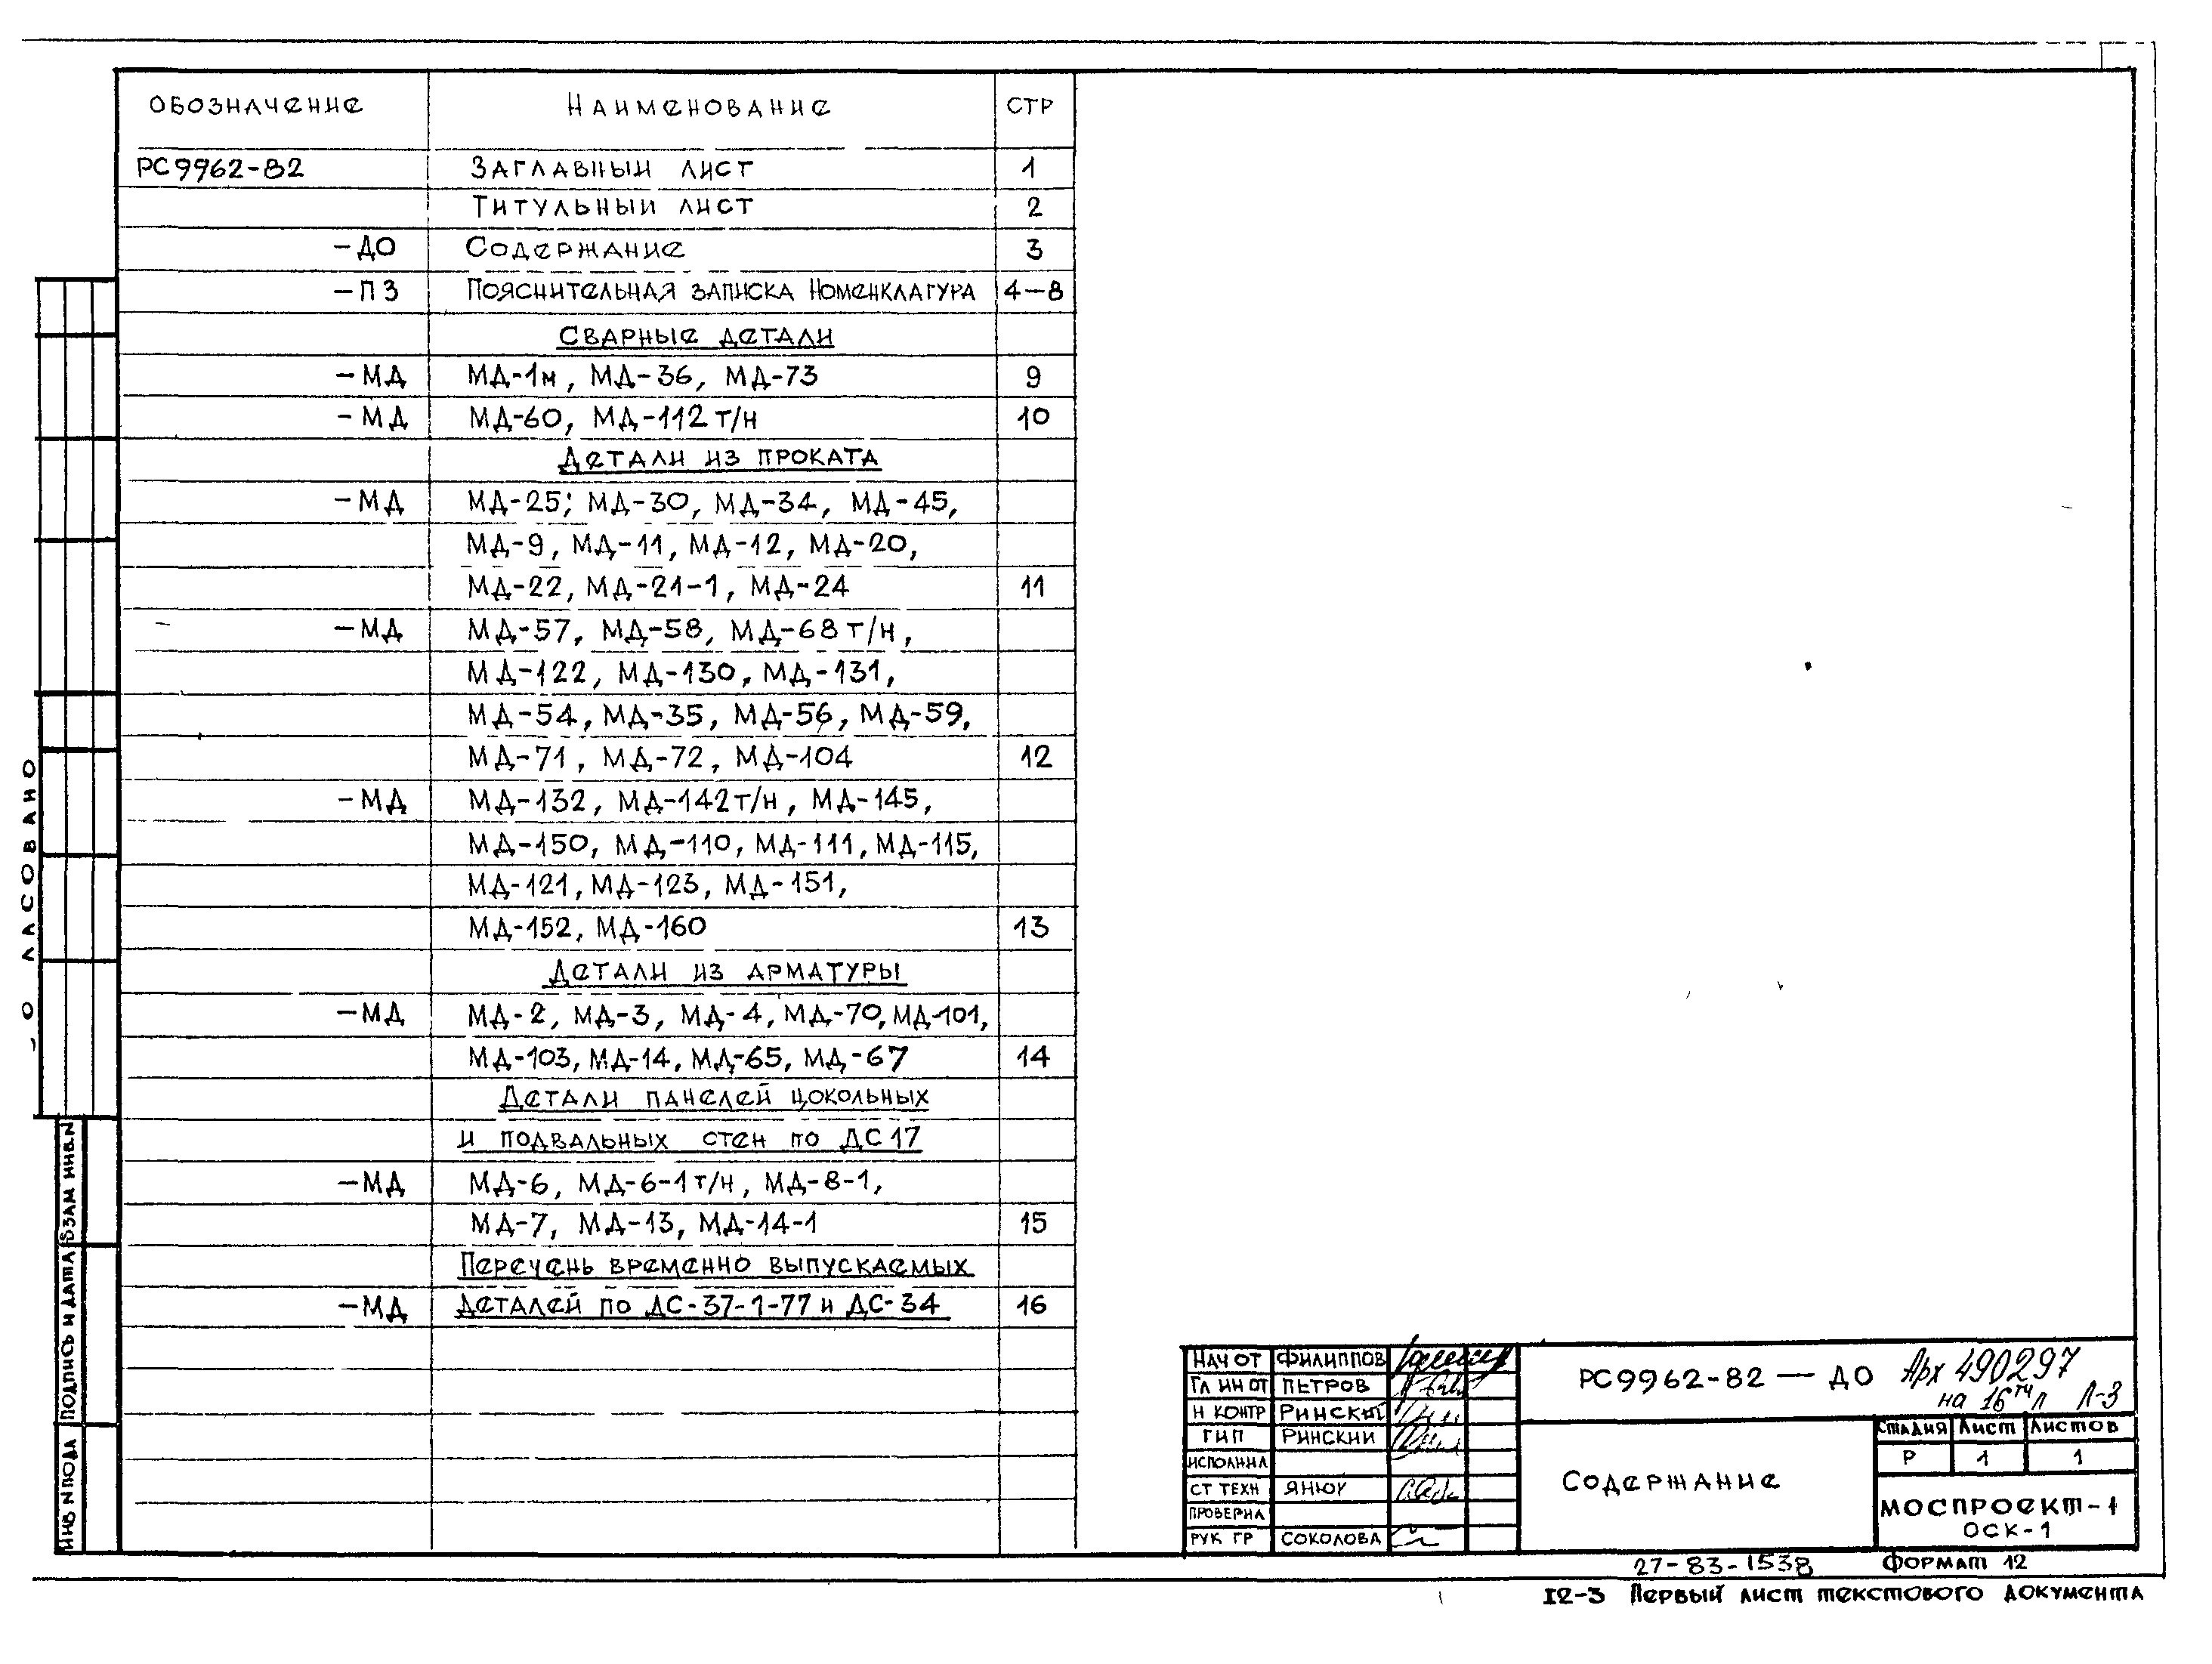 ОБОЗНАЧЕНИЕ НАИМЕНОВАНИЕ СТР
РС9962-82 ЗАГЛАВНЫЙ ЛИСТ 1
ТИТУЛЬНЫЙ ЛИСТ 2
-ДО СОДЕРЖАНИЕ 3
-ПЗ ПОЯСНИТЕЛЬНАЯ ЗАПИСКА НОМЕНКЛАТУРА 4-8
СВАРНЫЕ ДЕТАЛИ
-МД МД-1м, МД-36, МД-73 9
-МД МД-60, МД-112 т/н 10
ДЕТАЛИ ИЗ ПРОКАТА
-МД МД-25; МД-30, МД-34, МД-45,
МД-9, МД-11, МД-12, МД-20,
МД-22, МД-21-1, МД-24 11
-МД МД-57, МД-58, МД-68 т/н,
МД-122, МД-130, МД-131,
МД-54, МД-35, МД-56, МД-59,
МД-71, МД-72, МД-104 12
-МД МД-132, МД-142 т/н, МД-145,
МД-150, МД-110, МД-111, МД-115,
МД-121, МД-123, МД-151,
МД-152, МД-160 13
ДЕТАЛИ ИЗ АРМАТУРЫ
-МД МД-2, МД-3, МД-4, МД-70, МД-101,
МД-103, МД-14, МД-65, МД-67 14
ДЕТАЛИ ПАНЕЛЕЙ ЦОКОЛЬНЫХ
И ПОДВАЛЬНЫХ СТЕН ПО ДС17
-МД МД-6, МД-6-1 т/н, МД-8-1,
МД-7, МД-13, МД-14-1 15
ПЕРЕЧЕНЬ ВРЕМЕННО ВЫПУСКАЕМЫХ
-МД ДЕТАЛЕЙ ПО ДС-37-1-77 и ДС-34 16
О ЛАСОВАНО
ВЗАМ ИНВ.N
ПОДПИСЬ И ДАТА
ИНВ N ПОДЛ
НАЧ ОТ ФИЛИППОВ
ГЛ ИН ОТ ПЕТРОВ
Н КОНТР РИНСКИЙ
ГИП РИНСКИЙ
ИСПОЛНИЛ
СТ ТЕХН ЯНЮК
ПРОВЕРИЛ
РУК ГР СОКОЛОВА
РС9962-82 — ДО Арх 490297
на 16ти л Л-3
СОДЕРЖАНИЕ
СТАДИЯ ЛИСТ ЛИСТОВ
Р 1 1
МОСПРОЕКТ-1
ОСК-1
27-83-1538 ФОРМАТ 12
12-3 ПЕРВЫЙ ЛИСТ ТЕКСТОВОГО ДОКУМЕНТА